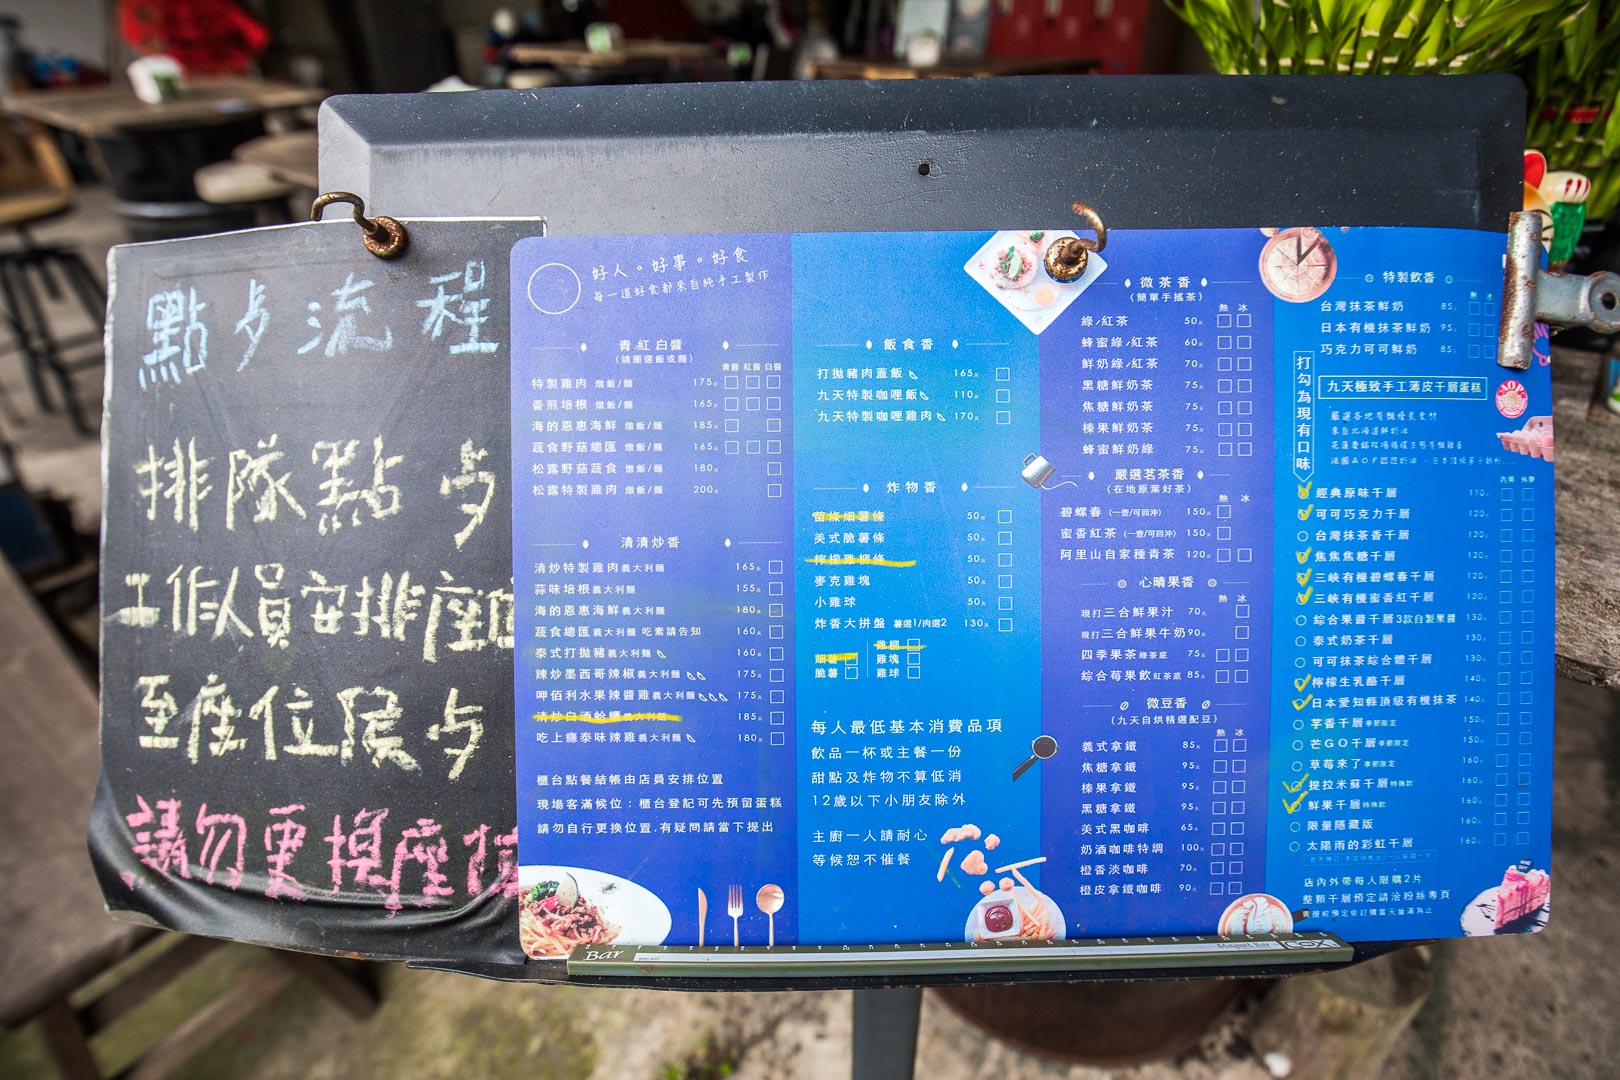 點歩流程
排隊點歩
工作人員安排座
至座位候歩
請勿更換座
好人。好事。好食
每一道好食都來自純手工製作
青/紅 白醬
(請圈選飯或麵)
青醬 紅醬 白醬
特製雞肉 燉飯/麵 175元
香煎培根 燉飯/麵 165元
海的恩惠海鮮 燉飯/麵 185元
蔬食野菇總匯 燉飯/麵 165元
松露野菇蔬食 燉飯/麵 180元
松露特製雞肉 燉飯/麵 200元
清清炒香
清炒特製雞肉義大利麵 165元
蒜味培根義大利麵 155元
海的恩惠海鮮義大利麵 180元
蔬食總匯義大利麵 吃素請告知 160元
泰式打拋豬義大利麵 160元
辣炒墨西哥辣椒義大利麵 175元
呷佰利水果辣醬雞義大利麵 175元
清炒白酒蛤蠣義大利麵 185元
吃上癮泰味辣雞義大利麵 180元
櫃台點餐結帳由店員安排位置
現場客滿候位;櫃台登記可先預留蛋糕
請勿自行更換位置,有疑問請當下提出
飯食香
打拋豬肉蓋飯 165元
九天特製咖哩飯 110元
九天特製咖哩雞肉 170元
炸物香
苗條細薯條 50元
美式脆薯條 50元
檸檬雞柳條 50元
麥克雞塊 50元
小雞球 50元
炸香大拼盤 薯選1/肉選2 130元
細薯 雞柳
脆薯 雞塊
雞球
每人最低基本消費品項
飲品一杯或主餐一份
甜點及炸物不算低消
12歲以下小朋友除外
主廚一人請耐心
等候恕不催餐
微茶香
(簡單手搖茶)
熱 冰
綠/紅茶 50元
蜂蜜綠/紅茶 60元
鮮奶綠/紅茶 70元
黑糖鮮奶茶 75元
焦糖鮮奶茶 75元
榛果鮮奶茶 75元
蜂蜜鮮奶綠 75元
嚴選茗茶香
(在地原葉好茶)
熱 冰
碧螺春 (一壺/可回沖) 150元
蜜香紅茶 (一壺/可回沖) 150元
阿里山自家種青茶 120元
心晴果香
熱 冰
現打三合鮮果汁 70元
現打三合鮮果牛奶90元
四季果茶綠茶底 75元
綜合莓果飲紅茶底 85元
微豆香
(九天自烘精選配豆)
熱 冰
義式拿鐵 85元
焦糖拿鐵 95元
榛果拿鐵 95元
黑糖拿鐵 95元
美式黑咖啡 65元
奶酒咖啡特調 100元
橙香淡咖啡 70元
橙皮拿鐵咖啡 90元
特製飲香
熱 冰
台灣抹茶鮮奶 85元
日本有機抹茶鮮奶 95元
巧克力可可鮮奶 85元
打勾為現有口味
九天極致手工薄皮千層蛋糕
內用 外帶
經典原味千層 110元
可可巧克力千層 120元
台灣抹茶香千層 120元
焦焦焦糖千層 120元
三峽有機碧螺春千層 120元
三峽有機蜜香紅千層 120元
綜合果醬千層3款自製果醬 130元
泰式奶茶千層 130元
可可抹茶綜合體千層 130元
檸檬生乳酪千層 140元
日本愛知縣頂級有機抹茶 140元
芋香千層季節限定 150元
芒GO千層季節限定 150元
草莓來了季節限定 160元
提拉米蘇千層特殊款 160元
鮮果千層特殊款 160元
限量隱藏版 160元
太陽雨的彩虹千層 160元
店內外帶每人限購2片
整顆千層預定請洽粉絲專頁
需提前預定依訂購當天量滿為止
Bar
Magnet Bar COX